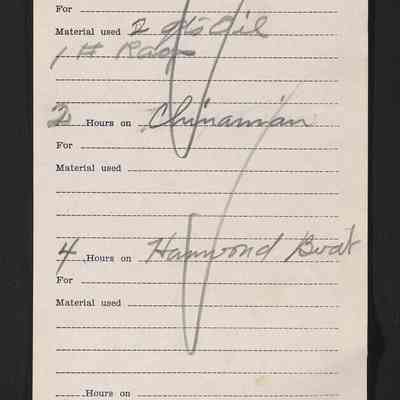 For
Material used 2 qts Oil
1 # Rags
2 Hours on Chinaman
For
Material used
4 Hours on Hammond Boat
For
Material used
Hours on